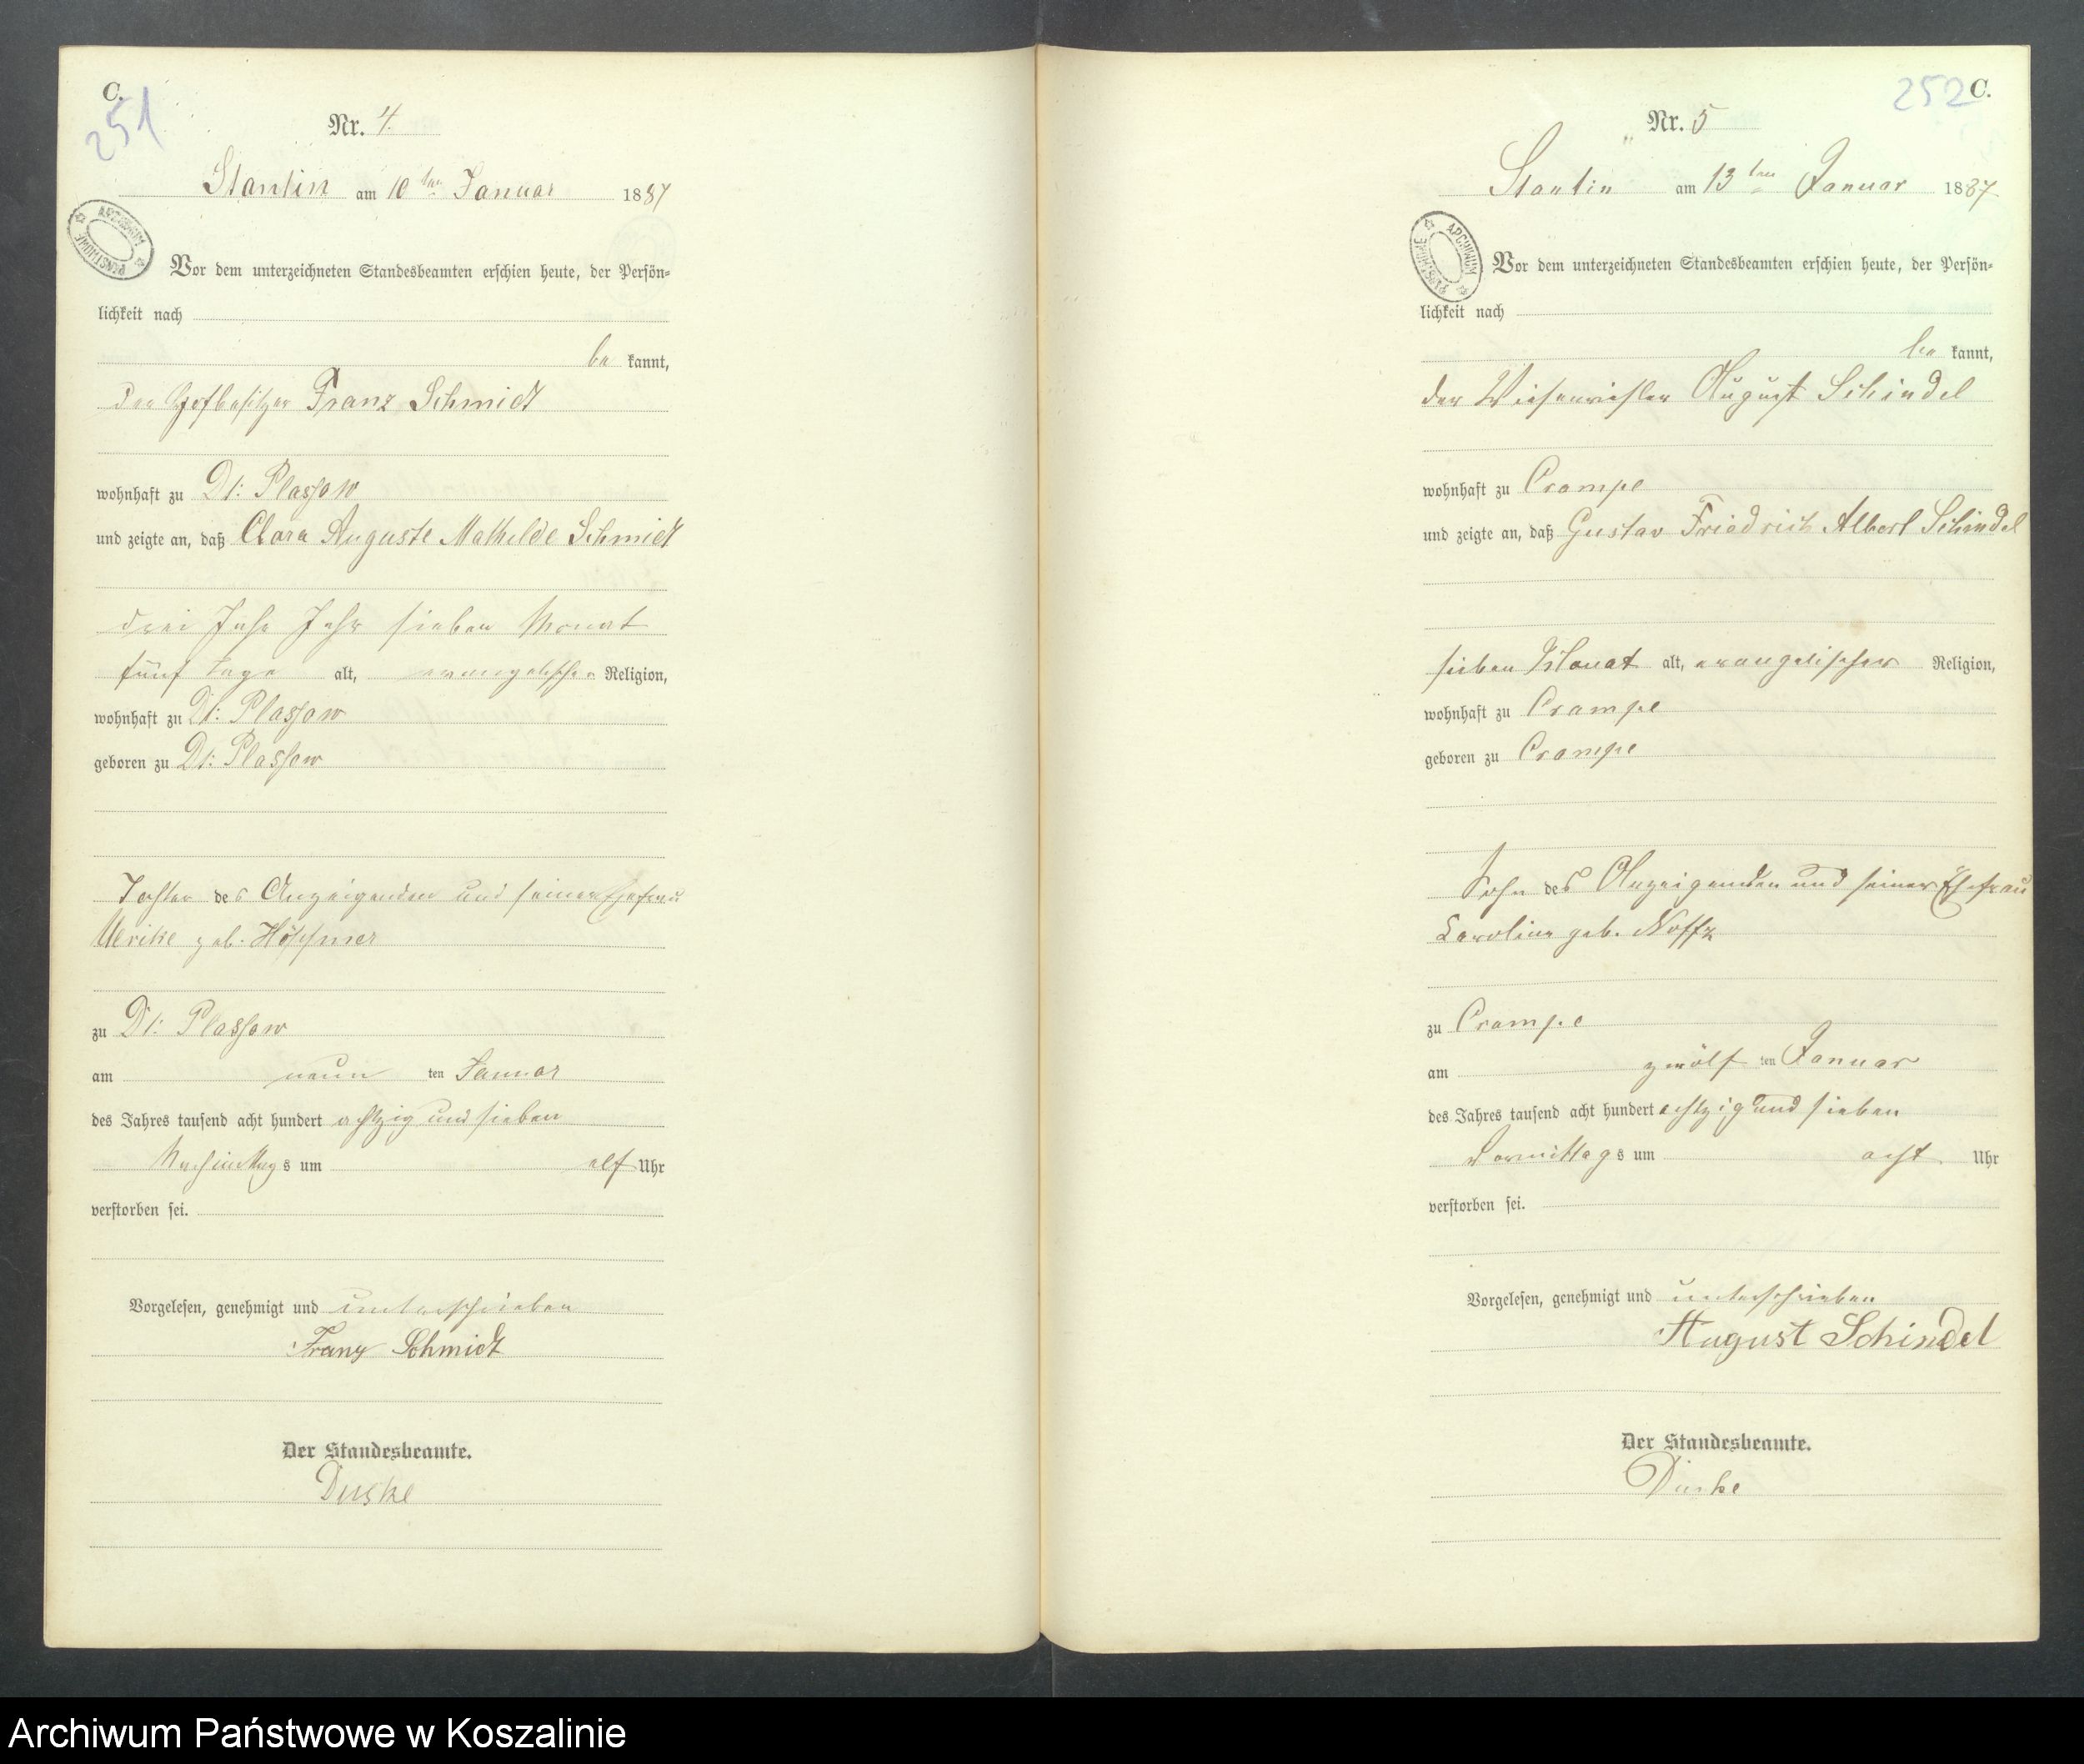 C.
251
Nr. 4.
Stantin am 10ten Januar 1887
ARCHIWUM PAŃSTWOWE
Vor dem unterzeichneten Standesbeamten erschien heute, der Persön-
lichkeit nach
be kannt,
der Hofbesitzer Franz Schmidt
wohnhaft zu Dt: Plassow
und zeigte an, daß Clara Auguste Mathilde Schmidt
drei Jahr Jahr sieben Monat
fünf Tage alt, evangelischer Religion,
wohnhaft zu Dt: Plassow
geboren zu Dt: Plassow
Tochter des Anzeigenden und seiner Ehefrau
Ulrike geb.
zu Dt: Plassow
am neun ten Januar
des Jahres tausend acht hundert achtzig und sieben
Nachmittags um elf Uhr
verstorben sei.
Vorgelesen, genehmigt und unterschrieben
Franz Schmidt
Der Standesbeamte.
Duske
252 C.
Nr. 5
Stantin am 13ten Januar 1887
ARCHIWUM PAŃSTWOWE
Vor dem unterzeichneten Standesbeamten erschien heute, der Persön-
lichkeit nach
be kannt,
der August Schindel
wohnhaft zu Crampe
und zeigte an, daß Gustav Friedrich Albert Schindel
sieben Monat alt, evangelischer Religion,
wohnhaft zu Crampe
geboren zu Crampe
Sohn des Anzeigenden und seiner Ehefrau
Caroline geb. Noffz
zu Crampe
am zwölf ten Januar
des Jahres tausend acht hundert achtzig und sieben
Vormittags um acht Uhr
verstorben sei.
Vorgelesen, genehmigt und unterschrieben
August Schindel
Der Standesbeamte.
Duske
Archiwum Państwowe w Koszalinie